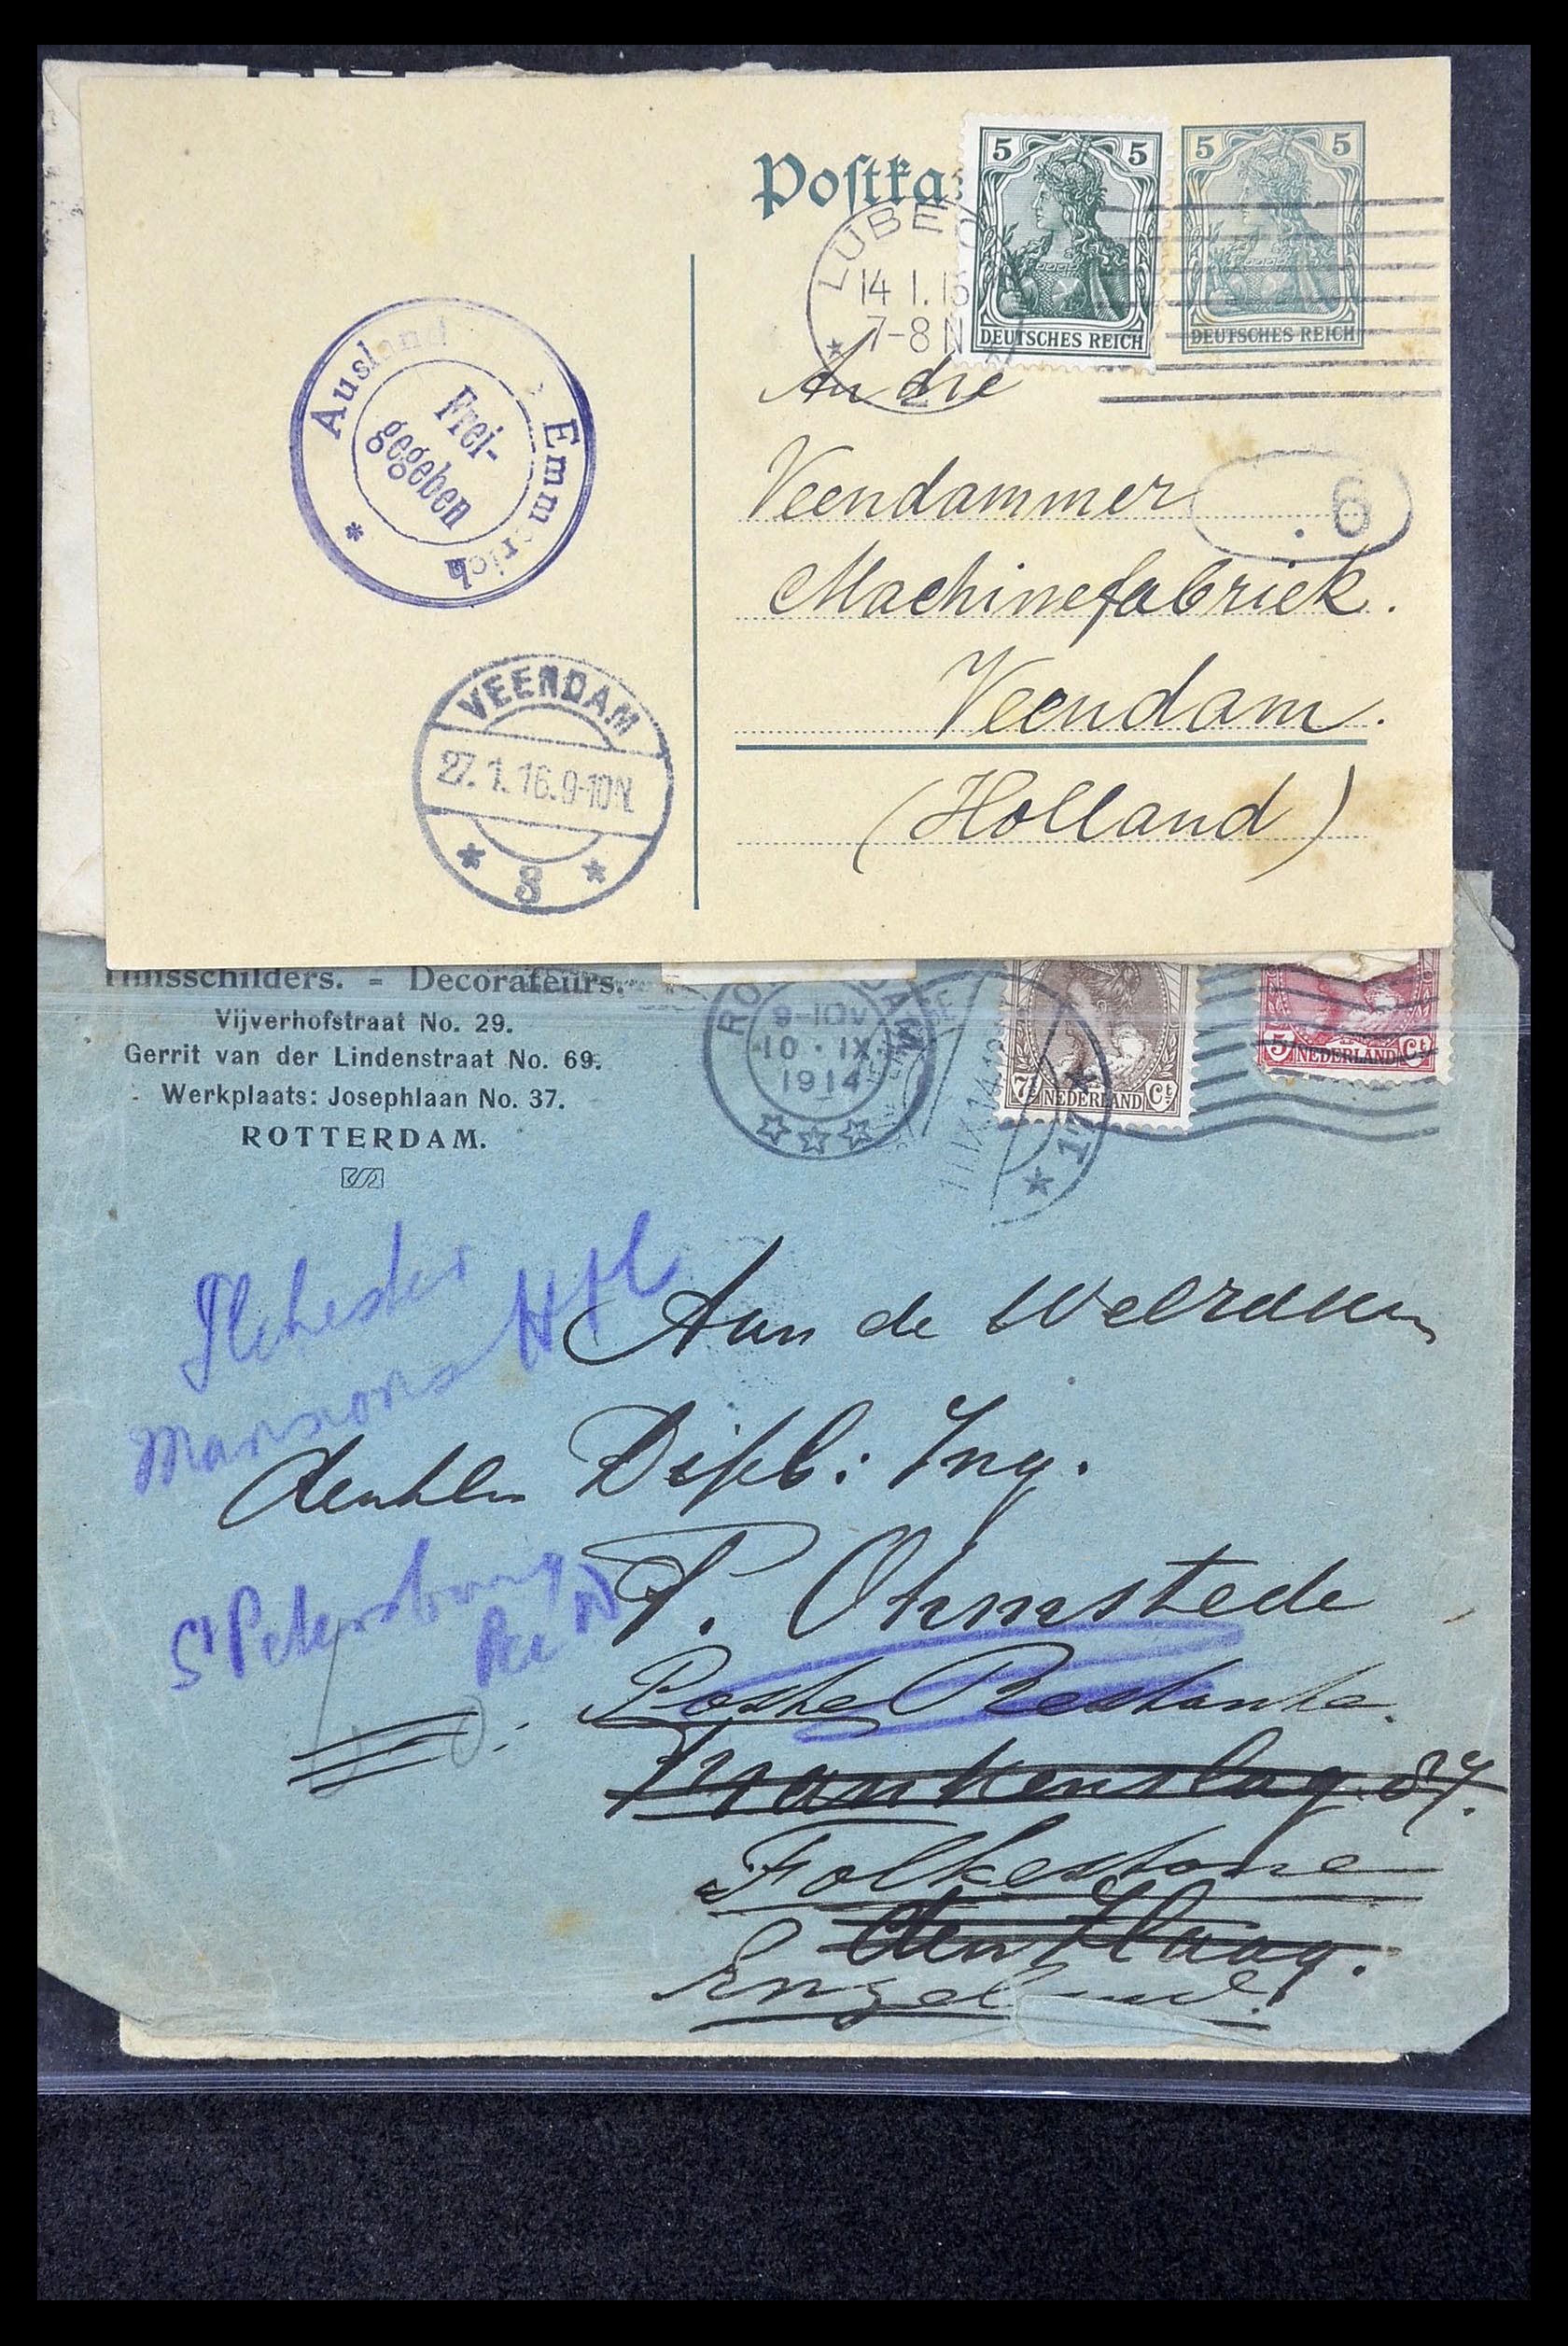 Postka
5 5
DEUTSCHES REICH
5 5
DEUTSCHES REICH
LUBEC
14 1. 16
7-8 N
Ausland Emmerich
Frei-
gegeben
*
An die
Veendammer
.6
Machinefabriek.
Veendam.
(Holland)
VEENDAM
27.1.16.9-10N.
* 3 *
Huisschilders. = Decorateurs.
Vijverhofstraat No. 29.
Gerrit van der Lindenstraat No. 69.
Werkplaats: Josephlaan No. 37.
ROTTERDAM.
9-10V
10 · IX
1914
7½ NEDERLAND Ct
5 NEDERLAND Ct
Ilchester
Mansions Htl
Aan de
Dipl: Ing.
P. Ohmstede
St Petersburg
Poste Restante.
Frankenslag 37.
Folkestone
Den Haag.
Engeland.